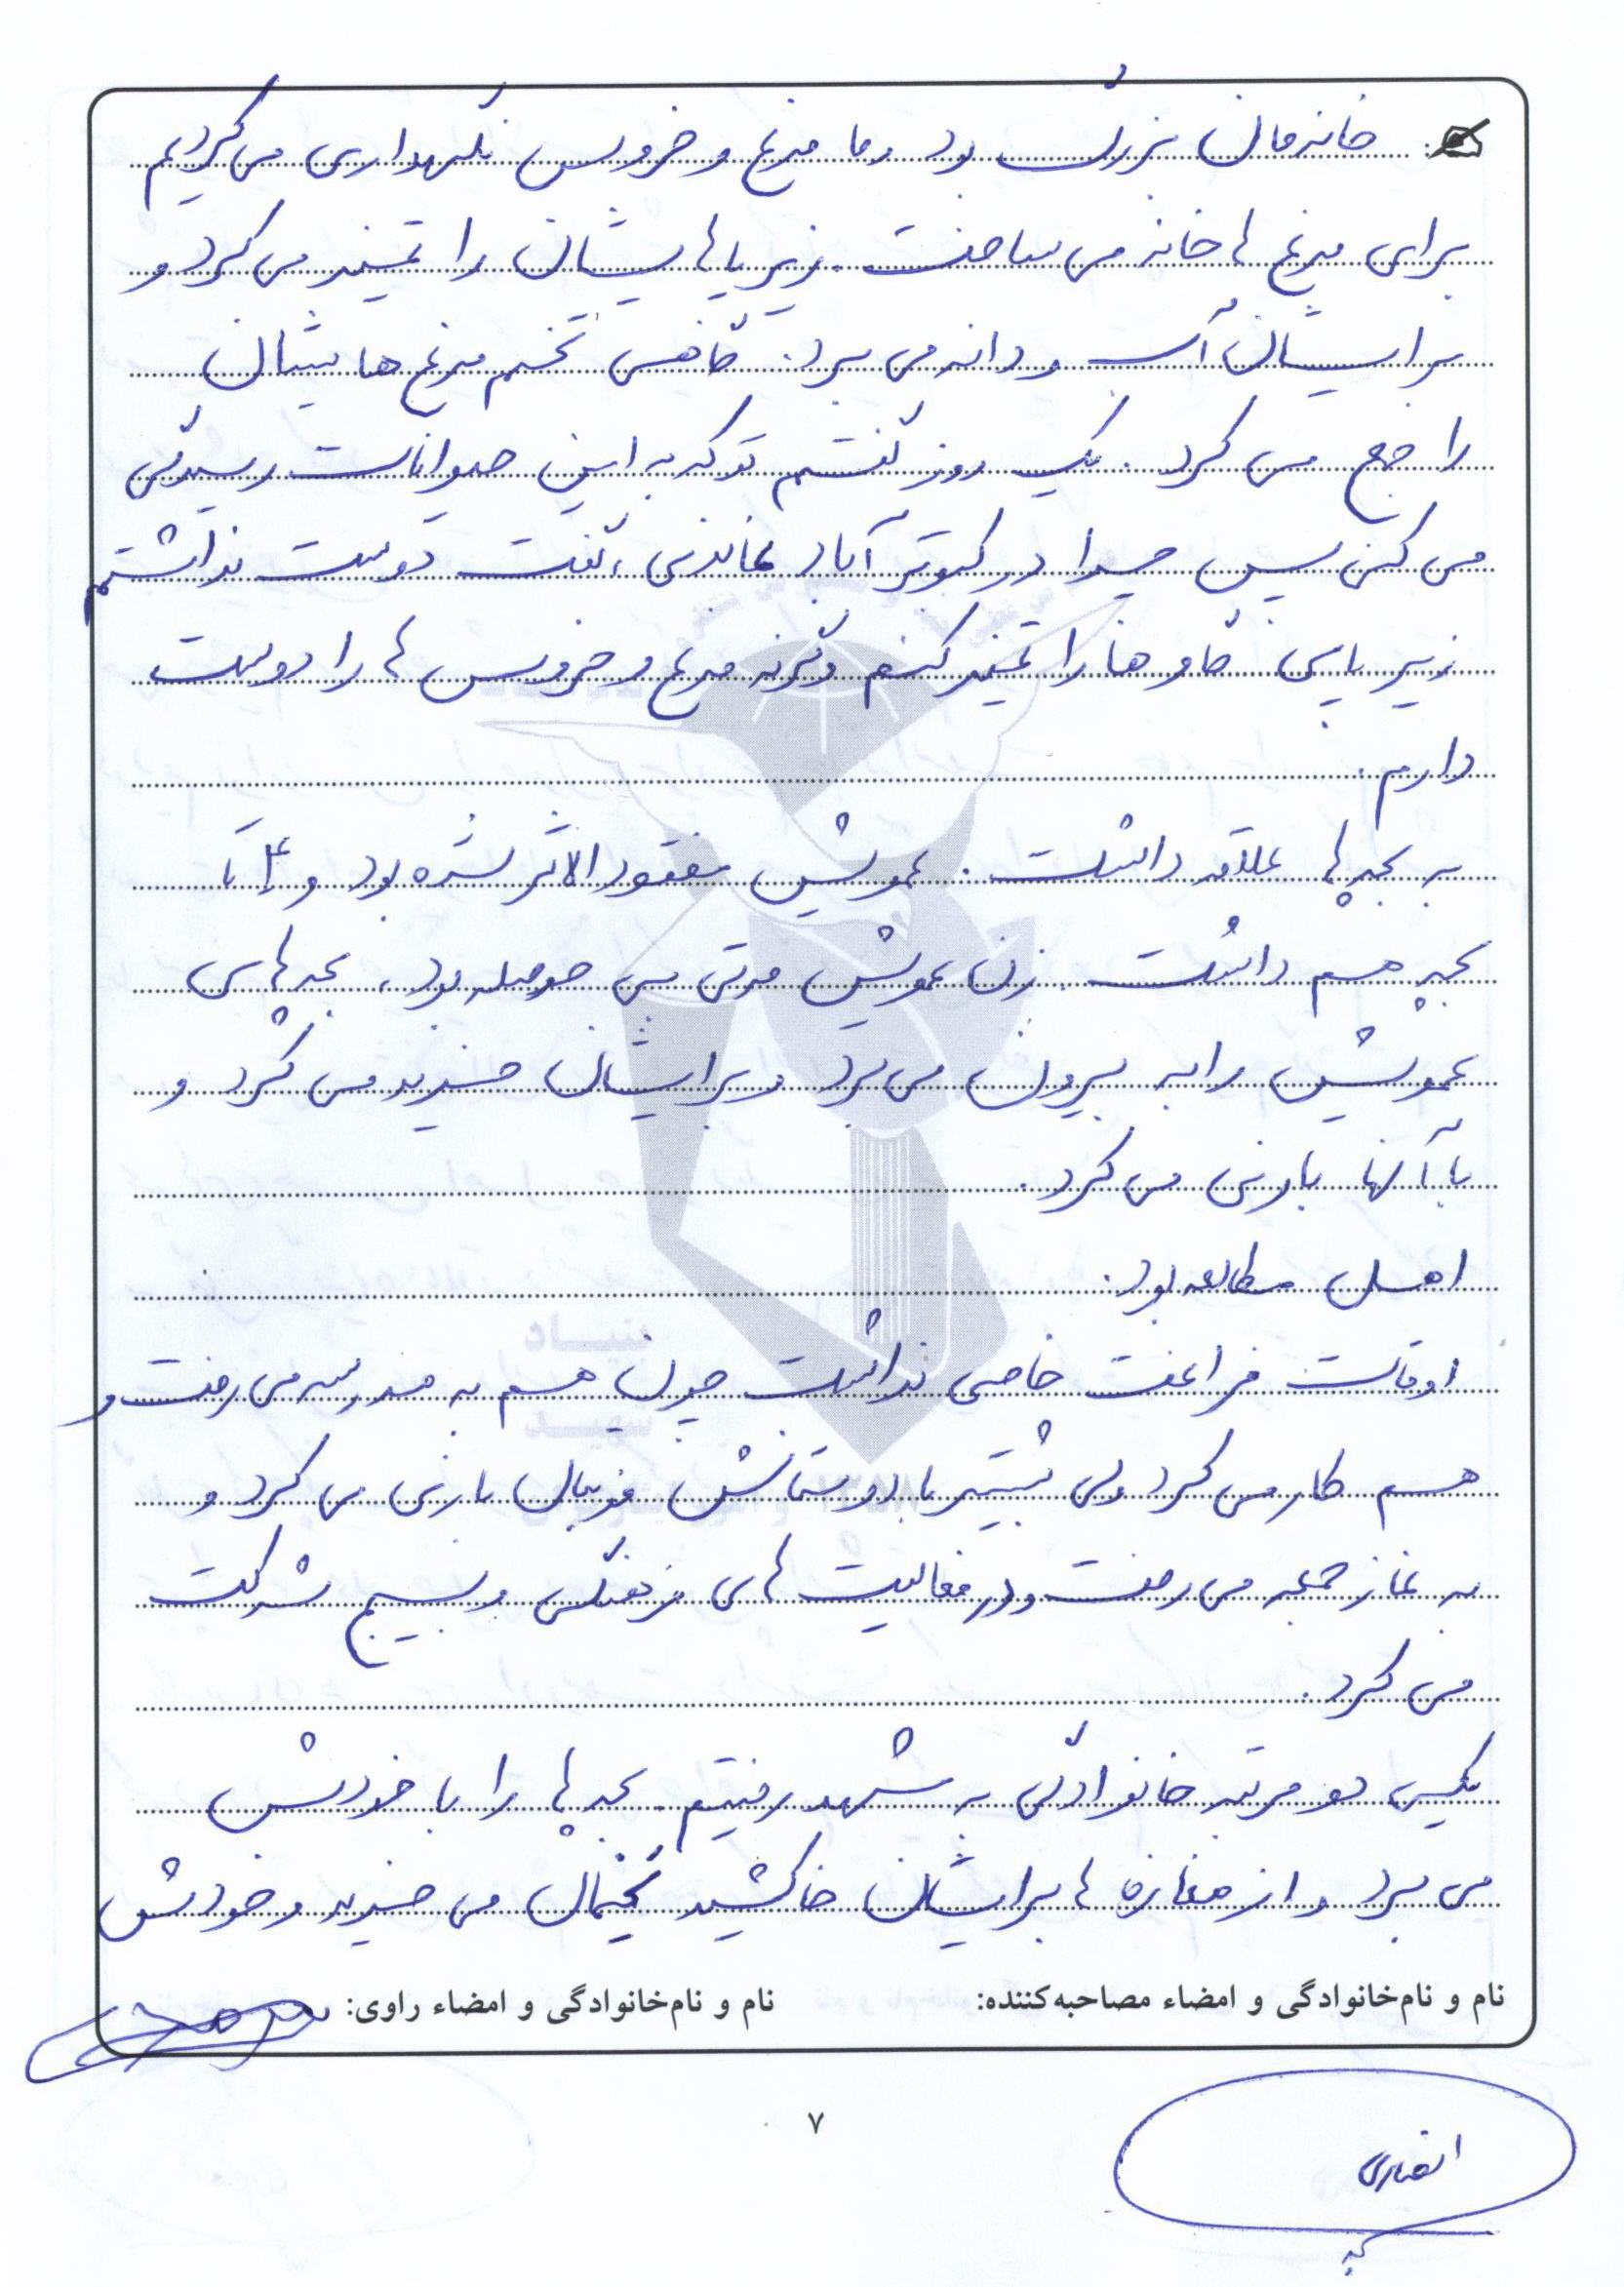 خانه مان بزرگ بود و ما مرغ و خروس نگهداری می کردیم
برای مرغ ها خانه می ساخت. زیر پاهایشان را تمیز می کرد و
برایشان آب و دانه می برد. گاهی تخم مرغ هایشان
را جمع می کرد. یک روز گفتم تو که به این حیوانات رسیدگی
می کنی پس چرا در کبوتر آباد نماندی، گفت دوست نداشتم
زیر پای گاوها را تمیز کنم وگرنه مرغ و خروس ها را دوست
دارم.
به بچه ها علاقه داشت. عمویش مفقودالاثر شده بود و ۴ تا
بچه هم داشت. زن عمویش مدتی بی حوصله بود، بچه های
عمویش را به بیرون می برد و برایشان خرید می کرد و
با آنها بازی می کرد.
اهل مطالعه بود.
اوقات فراغت خاصی نداشت چون هم به مدرسه می رفت و
هم کار می کرد ولی بیشتر با دوستانش فوتبال بازی می کرد و
به نماز جمعه می رفت و در فعالیت های فرهنگی و بسیج شرکت
می کرد.
یکی دو مرتبه خانوادگی به مشهد رفتیم. بچه ها را با خودش
می برد و از مغازه ها برایشان خاکشیر یخمال می خرید و خودش
نام و نام‌خانوادگی و امضاء مصاحبه‌کننده: نام و نام‌خانوادگی و امضاء راوی:
۷
انصاری
بنیاد
شهید